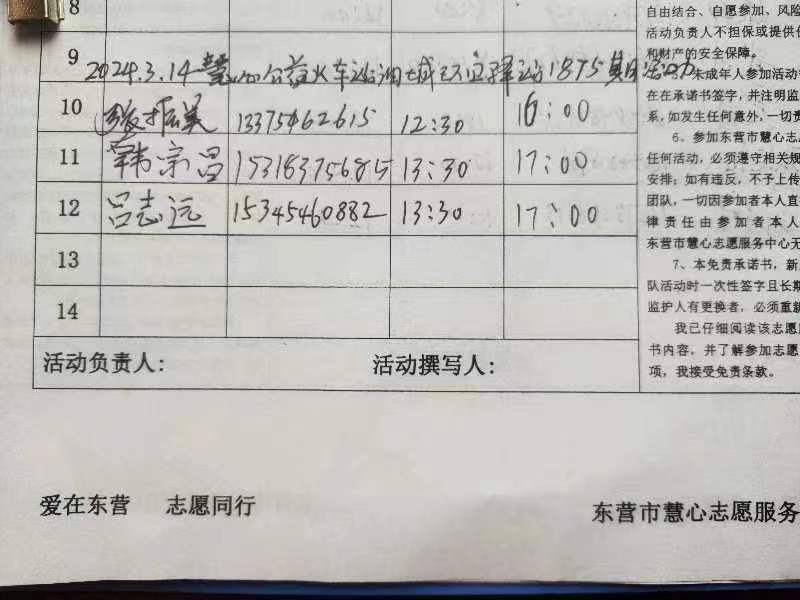 8
9
2024.3.14慧心公益火车站油城义工驿站1875期活动
10 振美 13375462615 12:30 16:00
11 韩宗昌 15318375685 13:30 17:00
12 吕志远 15345460882 13:30 17:00
13
14
活动负责人: 活动撰写人:
自由结合、自愿参加、风险
活动负责人不担保或提供任
和财产的安全保障。
未成年人参加活动
在在承诺书签字,并注明监
系,如发生任何意外,一切责
6、参加东营市慧心志愿
任何活动,必须遵守相关规
安排;如有违反,不予上传
团队,一切因参加者本人直
律责任由参加者本人
东营市慧心志愿服务中心无
7、本免责承诺书,新
队活动时一次性签字且长期
监护人有更换者,必须重新
我已仔细阅读该志愿
书内容,并了解参加志愿
项,我接受免责条款。
爱在东营 志愿同行
东营市慧心志愿服务